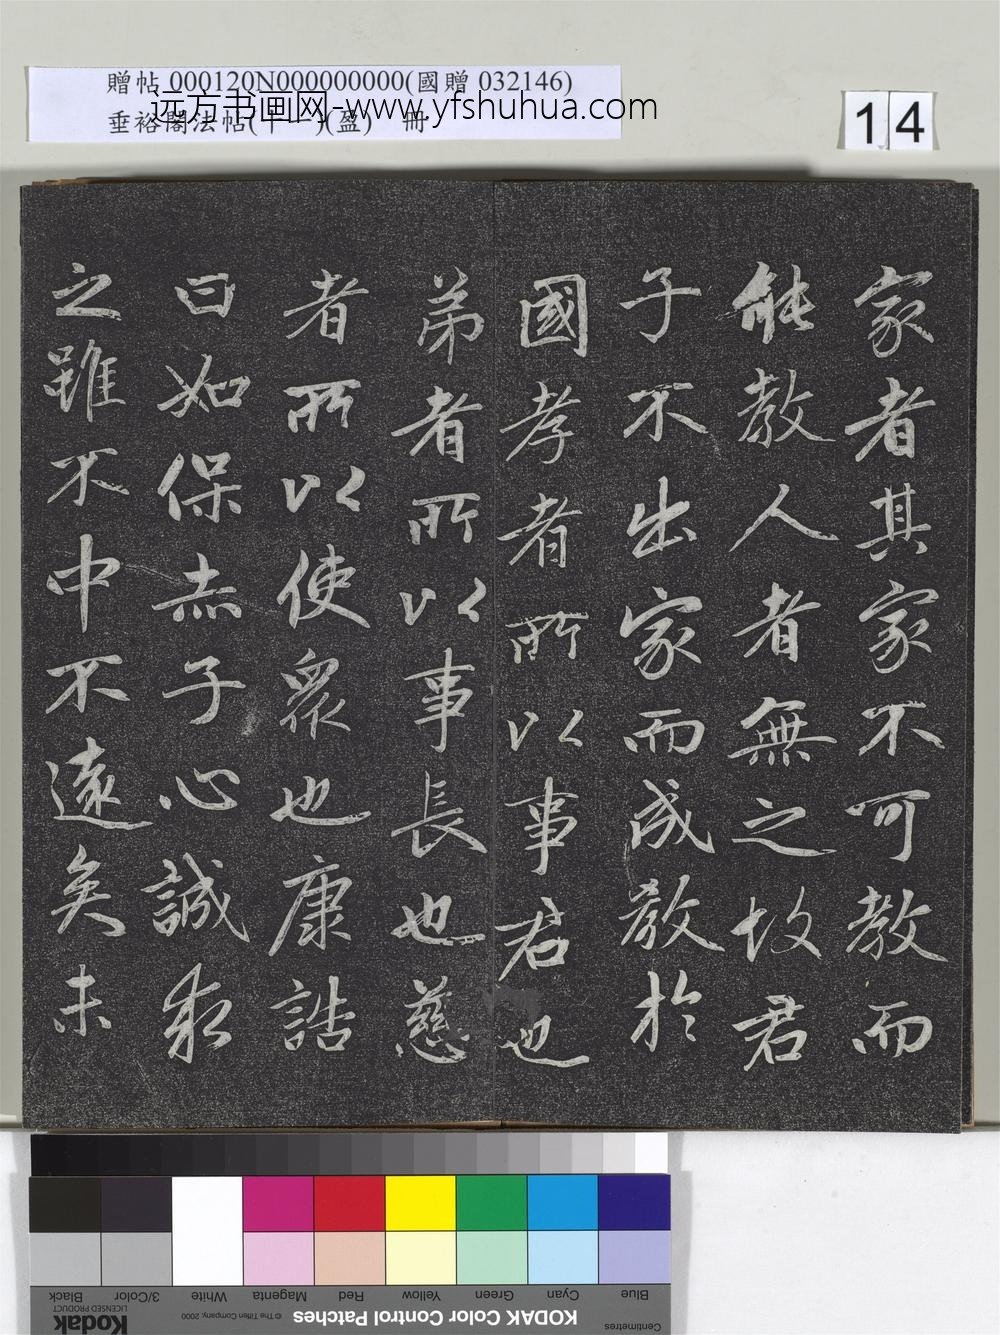 贈帖 000120N000000000(國贈 032146)
垂裕閣法帖(十一)(盈) 冊
远方书画网-www.yfshuhua.com
14
家者其家不可教而
能教人者無之故君
子不出家而成教於
國孝者所以事君也
弟者所以事長也慈
者所以使衆也康誥
曰如保赤子心誠求
之雖不中不遠矣未
Blue Cyan Green Yellow Red Magenta White 3/Color Black
Centimetres
KODAK Color Control Patches
© The Tiffen Company, 2000
Kodak
LICENSED PRODUCT